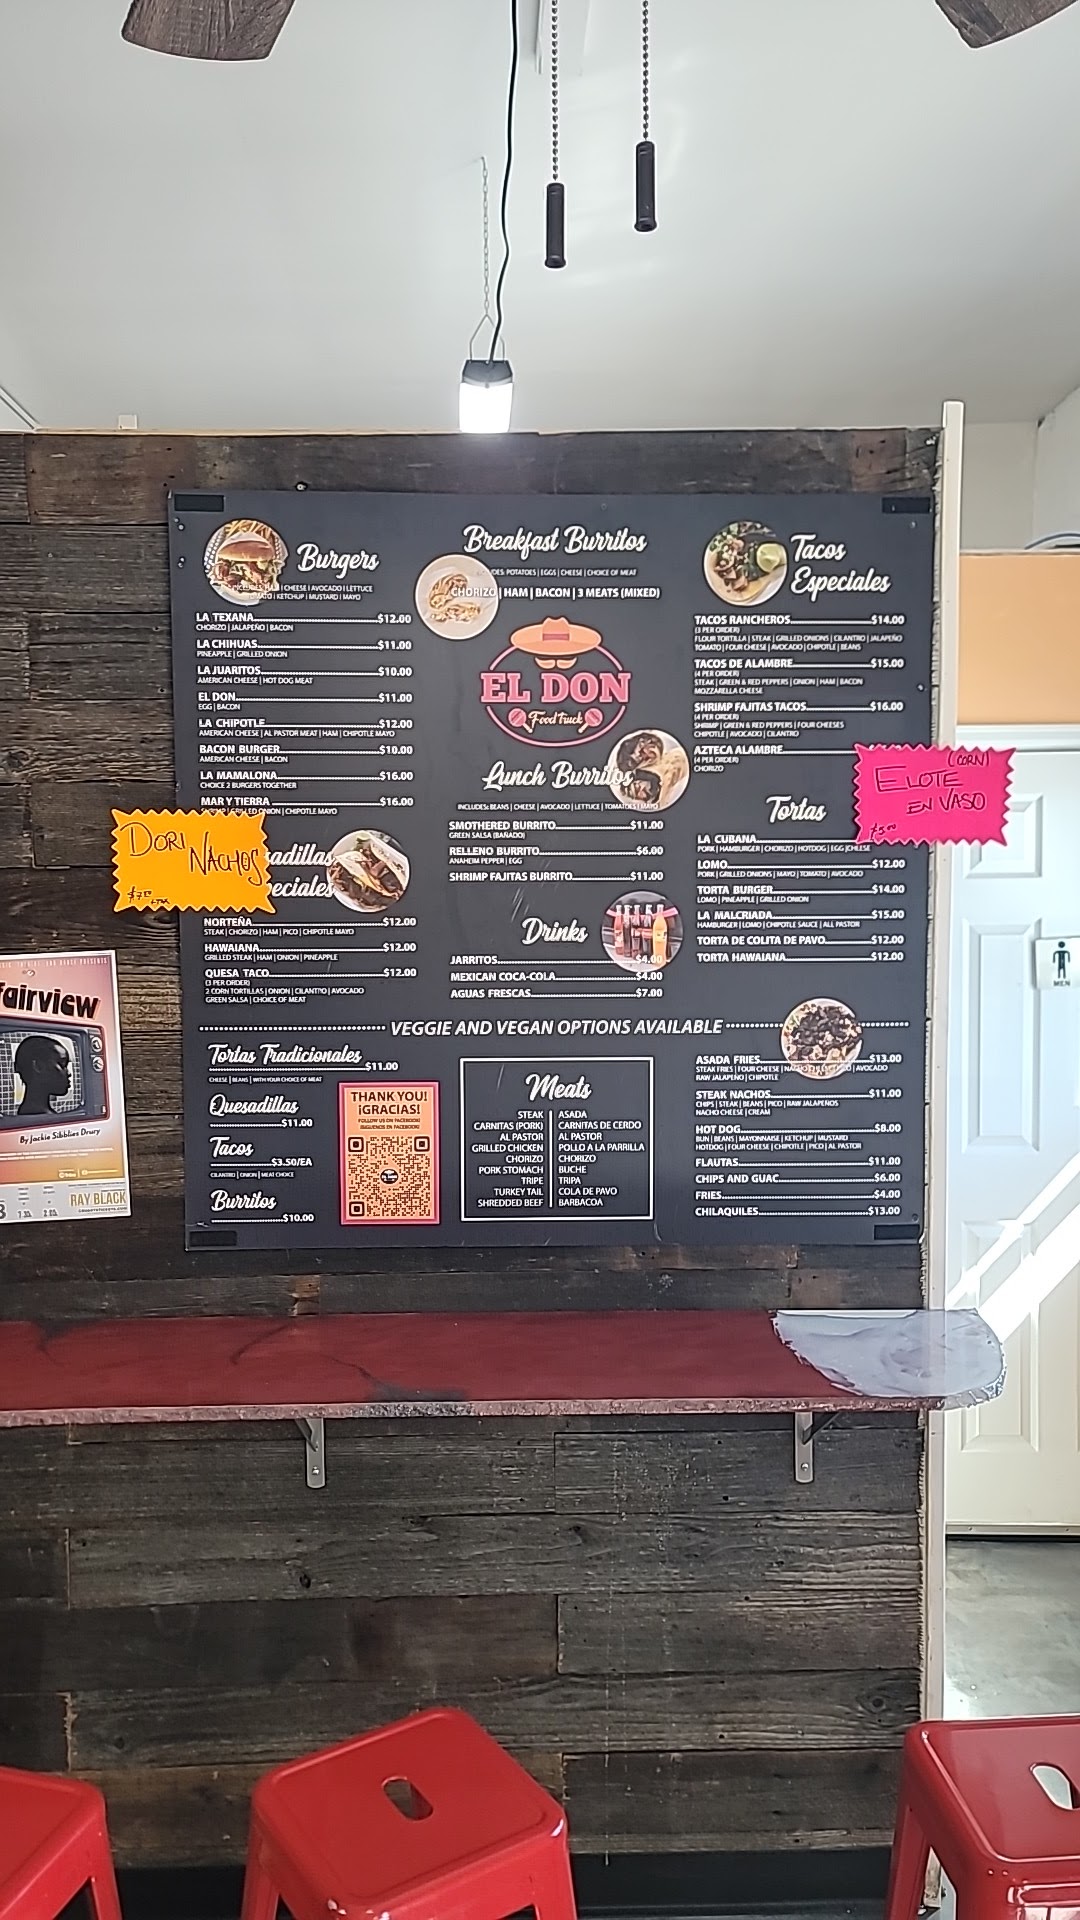 Burgers
CHEESE | AVOCADO | LETTUCE
KETCHUP | MUSTARD | MAYO
LA TEXANA $12.00
CHORIZO | JALAPEÑO | BACON
LA CHIHUAS $11.00
PINEAPPLE | GRILLED ONION
LA JUARITOS $10.00
AMERICAN CHEESE | HOT DOG MEAT
EL DON $11.00
EGG | BACON
LA CHIPOTLE $12.00
AMERICAN CHEESE | AL PASTOR MEAT | HAM | CHIPOTLE MAYO
BACON BURGER $10.00
AMERICAN CHEESE | BACON
LA MAMALONA $16.00
CHOICE 2 BURGERS TOGETHER
MAR Y TIERRA $16.00
SHRIMP | GRILLED ONION | CHIPOTLE MAYO
DORI
NACHOS
$7.00
+TAX
sadillas
eciales
NORTEÑA $12.00
STEAK | CHORIZO | HAM | PICO | CHIPOTLE MAYO
HAWAIANA $12.00
GRILLED STEAK | HAM | ONION | PINEAPPLE
QUESA TACO $12.00
(3 PER ORDER)
2 CORN TORTILLAS | ONION | CILANTRO | AVOCADO
GREEN SALSA | CHOICE OF MEAT
Breakfast Burritos
POTATOES | EGGS | CHEESE | CHOICE OF MEAT
CHORIZO | HAM | BACON | 3 MEATS (MIXED)
EL DON
Food truck
Lunch Burritos
INCLUDES: BEANS | CHEESE | AVOCADO | LETTUCE | TOMATOES | MAYO
SMOTHERED BURRITO $11.00
GREEN SALSA (BAÑADO)
RELLENO BURRITO $6.00
ANAHEIM PEPPER | EGG
SHRIMP FAJITAS BURRITO $11.00
Drinks
JARRITOS $4.00
MEXICAN COCA-COLA $4.00
AGUAS FRESCAS $7.00
Tacos
Especiales
TACOS RANCHEROS $14.00
(3 PER ORDER)
FLOUR TORTILLA | STEAK | GRILLED ONIONS | CILANTRO | JALAPEÑO
TOMATO | FOUR CHEESE | AVOCADO | CHIPOTLE | BEANS
TACOS DE ALAMBRE $15.00
(4 PER ORDER)
STEAK | GREEN & RED PEPPERS | ONION | HAM | BACON
MOZZARELLA CHEESE
SHRIMP FAJITAS TACOS $16.00
(4 PER ORDER)
SHRIMP | GREEN & RED PEPPERS | FOUR CHEESES
CHIPOTLE | AVOCADO | CILANTRO
AZTECA ALAMBRE
(4 PER ORDER)
CHORIZO
(CORN)
ELOTE
EN VASO
Tortas
LA CUBANA
PORK | HAMBURGER | CHORIZO | HOTDOG | EGG | CHEESE
LOMO $12.00
PORK | GRILLED ONIONS | MAYO | TOMATO | AVOCADO
TORTA BURGER $14.00
LOMO | PINEAPPLE | GRILLED ONION
LA MALCRIADA $15.00
HAMBURGER | LOMO | CHIPOTLE SAUCE | ALL PASTOR
TORTA DE COLITA DE PAVO $12.00
TORTA HAWAIANA $12.00
VEGGIE AND VEGAN OPTIONS AVAILABLE
Tortas Tradicionales
$11.00
CHEESE | BEANS | WITH YOUR CHOICE OF MEAT
Quesadillas
$11.00
Tacos
$3.50/EA
CILANTRO | ONION | MEAT CHOICE
Burritos
$10.00
THANK YOU!
¡GRACIAS!
FOLLOW US ON FACEBOOK!
SIGUENOS EN FACEBOOK!
Meats
STEAK | ASADA
CARNITAS (PORK) | CARNITAS DE CERDO
AL PASTOR | AL PASTOR
GRILLED CHICKEN | POLLO A LA PARRILLA
CHORIZO | CHORIZO
PORK STOMACH | BUCHE
TRIPE | TRIPA
TURKEY TAIL | COLA DE PAVO
SHREDDED BEEF | BARBACOA
ASADA FRIES $13.00
STEAK FRIES | FOUR CHEESE | AVOCADO
RAW JALAPEÑO | CHIPOTLE
STEAK NACHOS $11.00
CHIPS | STEAK | BEANS | PICO | RAW JALAPEÑOS
NACHO CHEESE | CREAM
HOT DOG $8.00
BUN | BEANS | MAYONNAISE | KETCHUP | MUSTARD
HOTDOG | FOUR CHEESE | CHIPOTLE | PICO | AL PASTOR
FLAUTAS $11.00
CHIPS AND GUAC $6.00
FRIES $4.00
CHILAQUILES $13.00
fairview
By Jackie Sibblies Drury
RAY BLACK
MEN